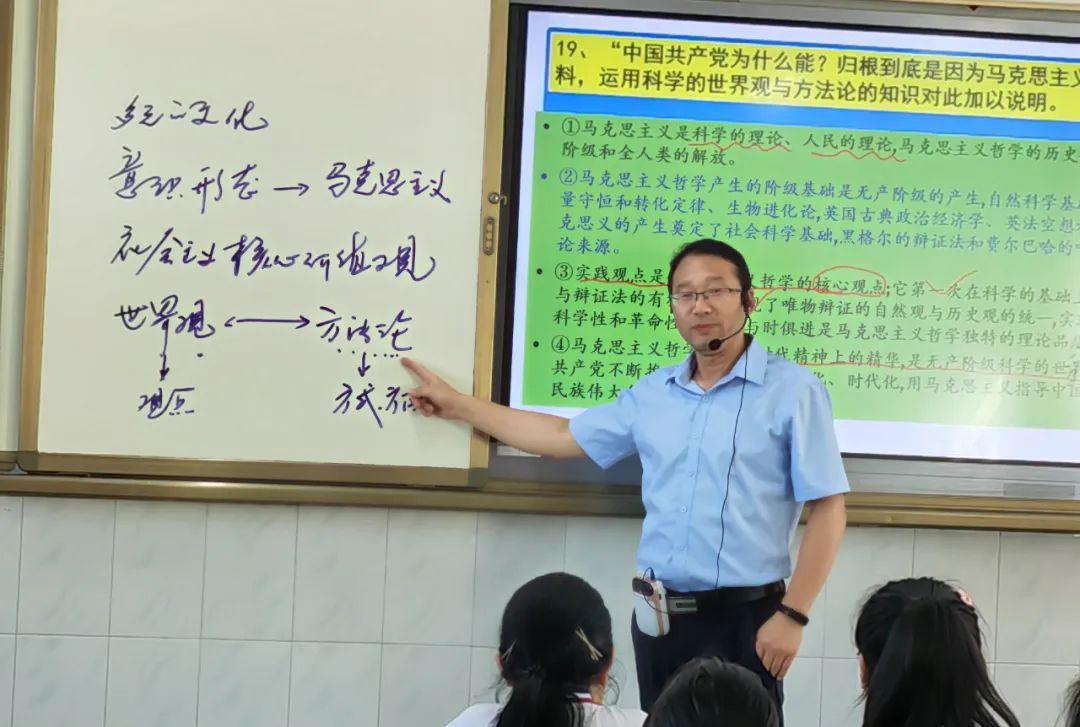 多元文化
意识形态→马克思主义
社会主义核心价值观
世界观 ↔ 方法论
↓ ↓
观点 方式.方
19、“中国共产党为什么能?归根到底是因为马克思主义
料，运用科学的世界观与方法论的知识对此加以说明。
• ①马克思主义是科学的理论、人民的理论,马克思主义哲学的历史
阶级和全人类的解放。
• ②马克思主义哲学产生的阶级基础是无产阶级的产生,自然科学基
量守恒和转化定律、生物进化论,英国古典政治经济学、英法空想
克思义的产生奠定了社会科学基础,黑格尔的辩证法和费尔巴哈的
论来源。
• ③实践观点是 哲学的核心观点;它第一次在科学的基础上
与辩证法的有 了唯物辩证的自然观与历史观的统一,实
科学性和革命性 与时俱进是马克思主义哲学独特的理论品
• ④马克思主义哲学 时代精神上的精华,是无产阶级科学的世
共产党不断推 、时代化,用马克思主义指导中国
民族伟大